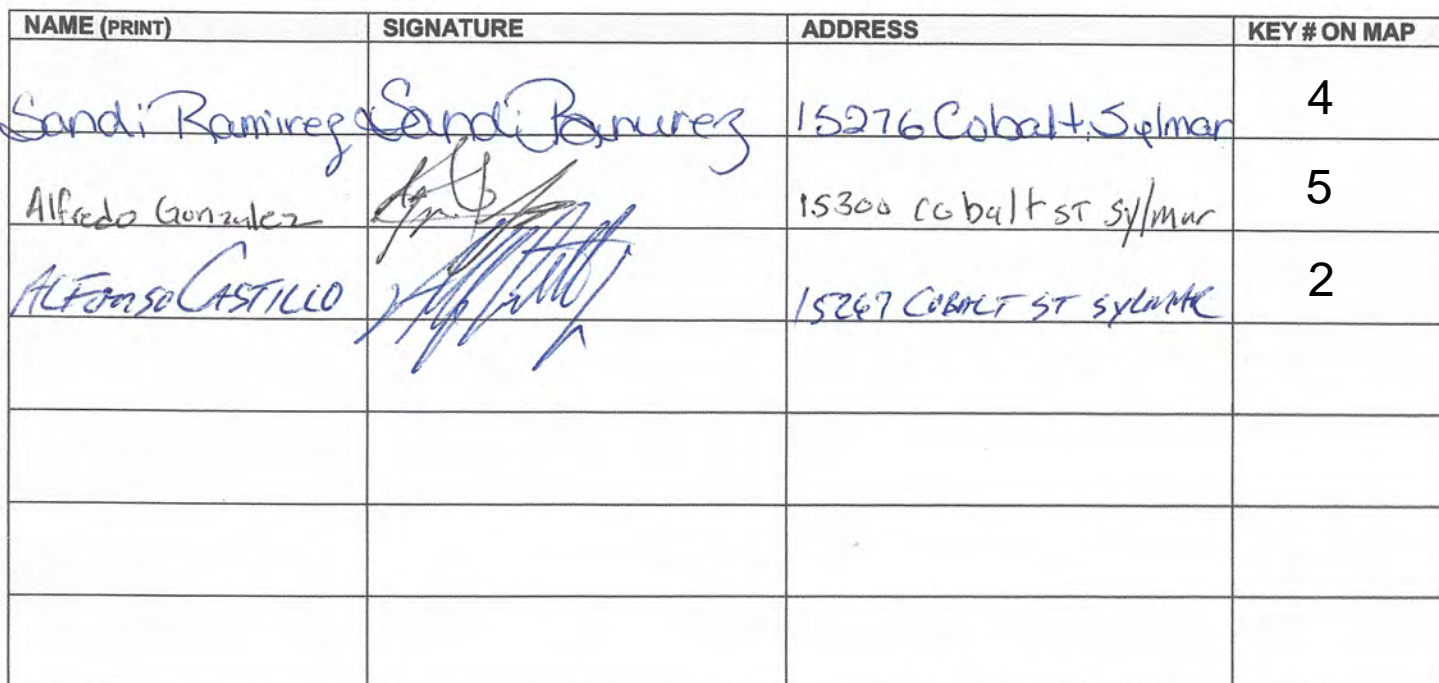 NAME (PRINT) SIGNATURE ADDRESS KEY # ON MAP
Sandi Ramirez Sandi Ramirez 15276 Cobalt, Sylmar 4
Alfredo Gonzalez 15300 cobalt ST Sylmar 5
ALFONSO CASTILLO 15267 COBALT ST SYLMAR 2